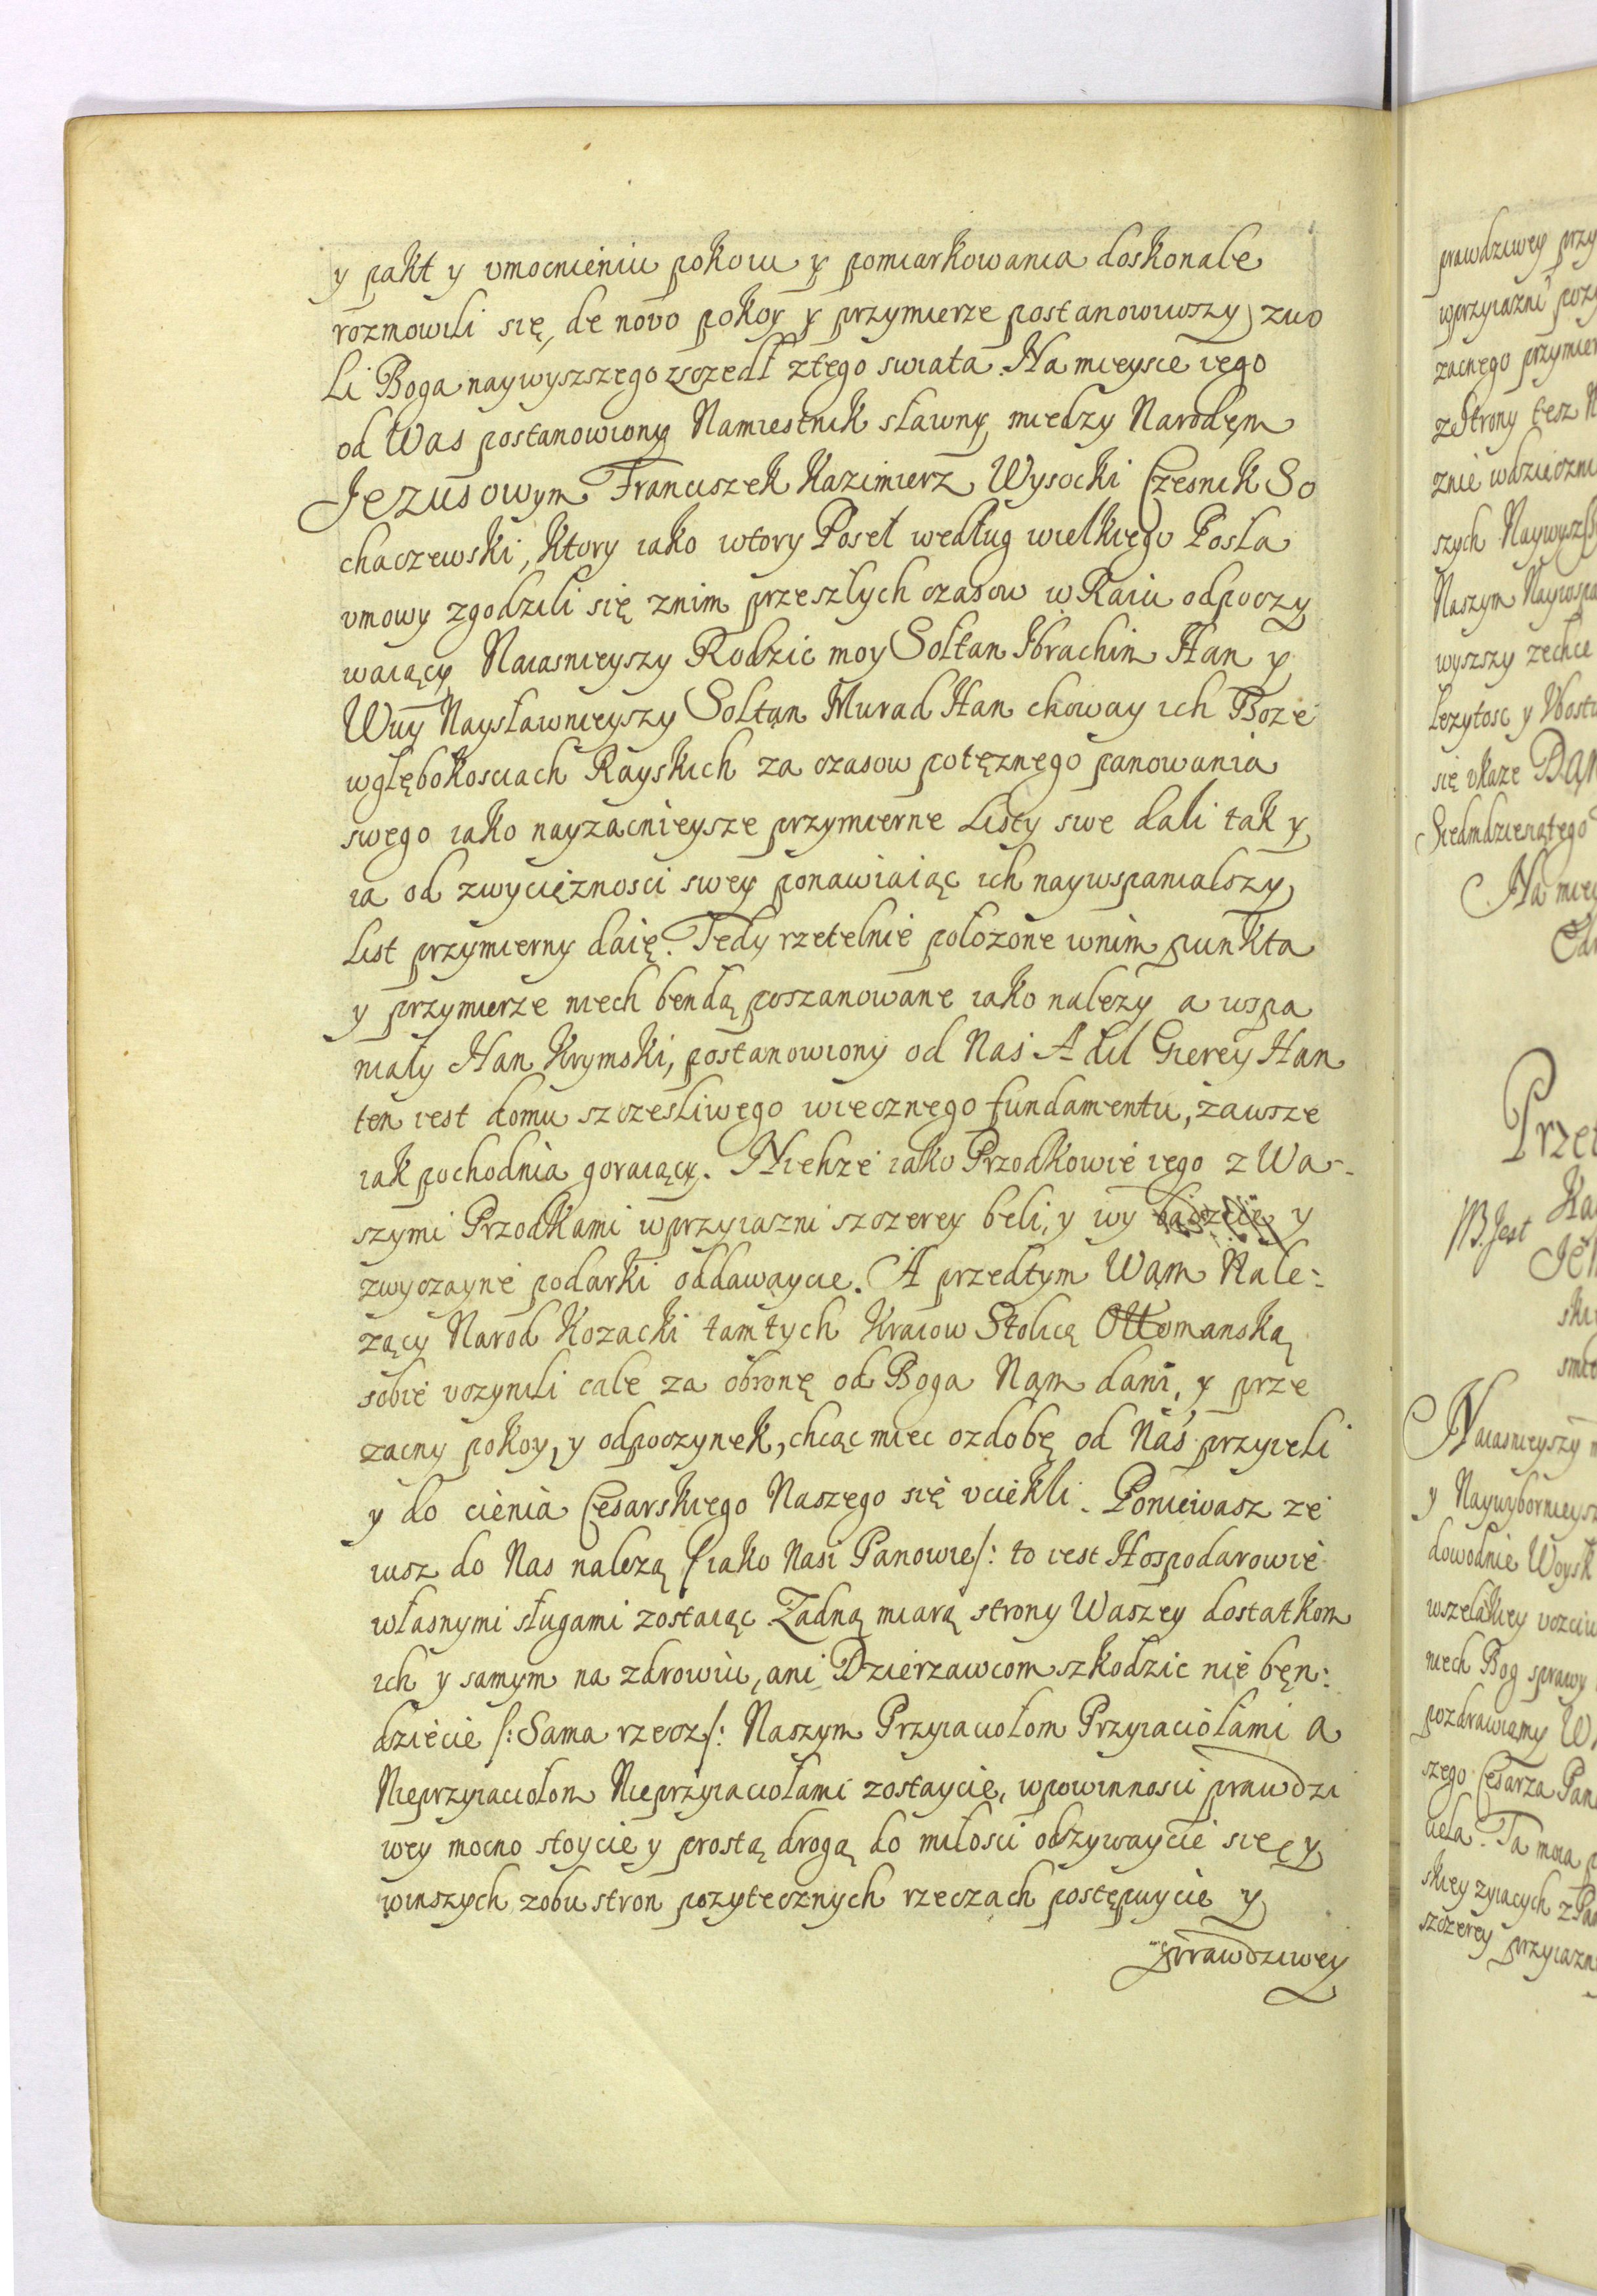 y pakt y vmocnieniu pokoiu y pomiarkowania doskonale
rozmowili się, de novo pokoy y przymierze postanowiwszy, zwo
li Boga naywyszszego zszedł ztego swiata. Na mieysce iego
od Was postanowiony Namiestnik sławny, miedzy Narodęm
Jezusowym Franciszek Kazimierz Wysocki Czesnik So
chaczewski, ktory iako wtory Poseł według wielkiego Posła
vmowy zgodzili się znim przeszłych czasow w Raiu odpoczy
waiący Naiasnieyszy Rodzic moy Sołtan Ibrachim Han y
Wuy Naysławnieyszy Sołtan Murad Han choway ich Boze
wgłębokosciach Rayskich za czasow potęznego panowania
swego iako nayzacnieysze przymierne Listy swe dali tak y
ia od zwycięznosci swey ponawiaiąc ich naywspanialszy
List przymierny daię. Tedy rzetelnie połozone wnim punkta
y przymierze niech bendą poszanowane iako nalezy a wspa
niały Han Krymski, postanowiony od Nas Adil Gierey Han
ten iest domu szczesliwego wiecznego fundamentu, zawsze
iak pochodnia goraiący. Niehze iako Przodkowie iego z Wa-
szymi Przodkami wprzyiazni szczerey beli, y wy y
zwyczayne podarki oddawaycie. A przedtym Wam Nale:
zący Narod Kozacki tamtych Kraiow Stolicą Ottomanską
sobie vczynili cale za obronę od Boga Nam dani, y prze
zacny pokoy, y odpoczynek, chcąc miec ozdobę od Nas przyieli
y do cienia Cesarskiego Naszego się vciekli. Poniewasz ze
iusz do Nas nalezą /iako Nasi Panowie/: to iest Hospodarowie
własnymi sługami zostaiąc Zadną miarą strony Waszey dostatkom
ich y samym na zdrowiu, ani Dzierzawcom szkodzic nie bęn:
dziecie /: Sama rzecz/: Naszym Przyiaciołom Przyiaciołami a
Nieprzyiaciołom Nieprzyiaciołami zostaycie, wpowinnosci prawdzi
wey mocno stoycie y prostą drogą do miłosci odzywaycie się, y
winszych zobu stron pozytecznych rzeczach postępuycie y
prawdziwey
prawdziwey przy
wprzyiazni pozy
zacnego przymier
zestrony tesz N
znie wdzieczni
szych Naywyzs
Naszym Naywspa
wyszszy zechce
lezytosc y Wostu
się vkaze Dan
Siedmdziesiątego
Na miey
Przet
NB. Jest Ka
Naiasnieyszy
y Naywybornieysz
dowodnie Woysk
wszelakiey vczciw
niech Bog sprawy
pozdrawiamy W
szego Cesarza Pan
ciela. Ta moia p
skiey zyiacych z Pan
szczerey przyiazn